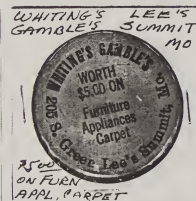 WHITING'S LEE'S
GAMBLE'S SUMMIT
MO
WHITING'S GAMBLE'S
WORTH
$5.00 ON
Furniture
Appliances
Carpet
205 S. Green Lee's Summit, Mo.
500
ON FURN
APPL, CARPET